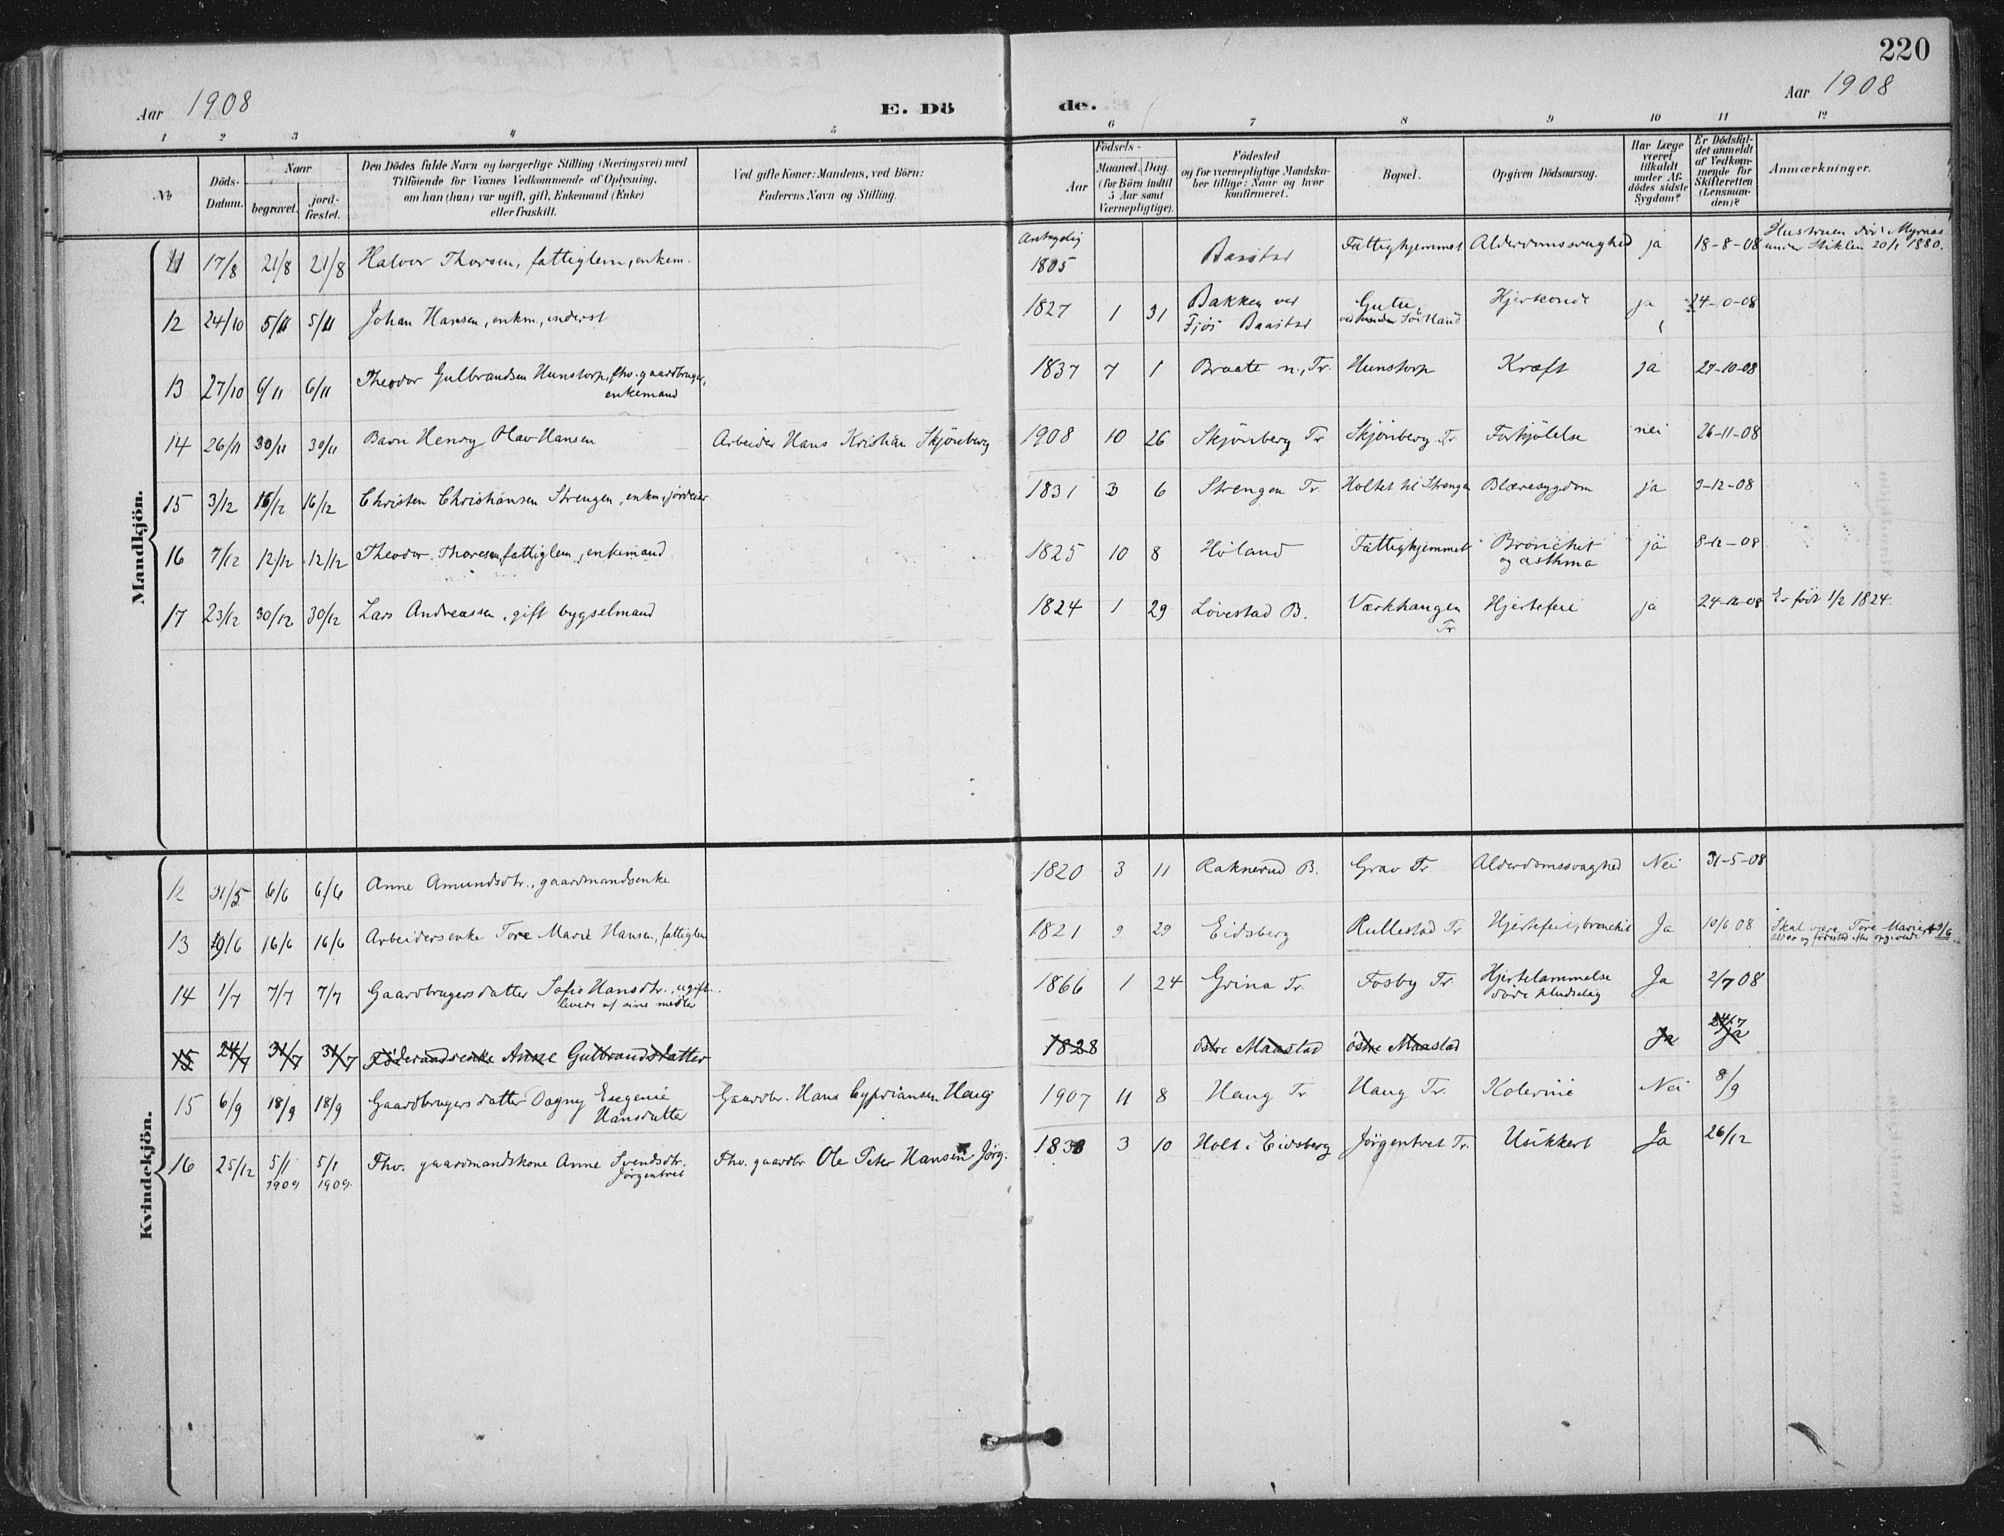 220
Aar 1908
E. Döde.
Aar 1908
1 2 3 4 5 6 7 8 9 10 11 12
№
Döds-Datum.
Naar
begravet.
jord-fæstet.
Den Dödes fulde Navn og borgerlige Stilling (Næringsvei) med
Tilföiende for Voxnes Vedkommende af Oplysning,
om han (hun) var ugift, gift, Enkemand (Enke)
eller fraskilt.
Ved gifte Koner: Mandens, ved Börn:
Faderens Navn og Stilling.
Födsels-
Aar
Maaned. Dag.
(for Börn indtil
5 Aar samt
Værnepligtige).
Födested
og for værnepligtige Mandska-
ber tillige: Naar og hvor
konfirmeret.
Bopæl.
Opgiven Dödsaarsag.
Har Læge
været
tilkaldt
under Af-
dödes sidste
Sygdom?
Er Dödsfal-
det anmeldt
af Vedkom-
mende for
Skifteretten
(Lensman-
den)?
Anmærkninger.
Mandkjön.
11 17/8 21/8 21/8 Halvor Thorsen, fattiglem, enkem. Antagelig 1805 Baastad Fattighjemmet Alderdomssvaghed ja 18-8-08 Hustruen død i Myrnæs
under Stiklen 20/1 1880.
12 24/10 5/11 5/11 Johan Hansen, enkm, inderst 1827 1 31 Bakken ved
Fjøs Baastad ja 24-10-08
13 27/10 6/11 6/11 Theodor Gulbrandsen Hunstorp, fhv. gaardbruger,
enkemand 1837 7 1 Braate n., Tr. Hunstorp Kræft ja 27-10-08
14 26/11 30/11 30/11 Barn Henry Olav Hansen Arbeider Hans Kristian Skjönberg 1908 10 26 Skjönberg Tr Skjönberg Tr Forkjölelse nei 26-11-08
15 3/12 16/12 16/12 Christen Christiansen Strengen, enkm, jordeier 1831 3 6 Strengen Tr. Holtet til Strengen Blæresygdom ja 3-12-08
16 7/12 12/12 12/12 Theodor Thoresen, fattiglem, enkemand 1825 10 8 Høland Fattighjemmet Bronchit
og asthma ja 8-12-08
17 23/12 30/12 30/12 Lars Andreassen, gift bygselmand 1824 1 29 Løvestad B. Værkhaugen
Tr. Hjertefeil ja 24-12-08 Er født 1/2 1824.
Kvindekjön.
12 31/5 6/6 6/6 Anne Amundsdtr., gaardmandsenke 1820 3 11 Raknerud B. Grav Tr. Alderdomssvaghed Nei 31-5-08
13 9/6 16/6 16/6 Arbeidersenke Tore Marie Hansen, fattiglem 1821 9 29 Eidsberg Rullestad Tr. Hjertefeil, bronchit Ja 10/6 08 Skal være Tore Marie
14 1/7 7/7 7/7 Gaardbrugersdatter Sofie Hansdtr., ugift.
levede af sine midler 1866 1 24 Grina Tr. Fosby Tr. Hjertelammelse
døde pludselig Ja 2/7 08
15 24/7 31/7 31/7 Föderaadsenke Anne Gulbrandsdatter 1828 östre Maastad östre Maastad Ja 24/7
ja
15 6/9 18/9 18/9 Gaardbrugersdatter Dagny Eugenie
Hansdatter Gaardbr. Hans Cypriansen Haug 1907 11 8 Haug Tr Haug Tr. Kolerine Nei 8/9
16 25/12 5/1
1909 5/1
1909. Fhv. gaardmandskone Anne Svendsdtr.
Jörgentvet Fhv. gaardbr Ole Peter Hansen Jörg. 3 10 Holt i Eidsberg Jörgentvet Tr. Usikkert Ja 26/12